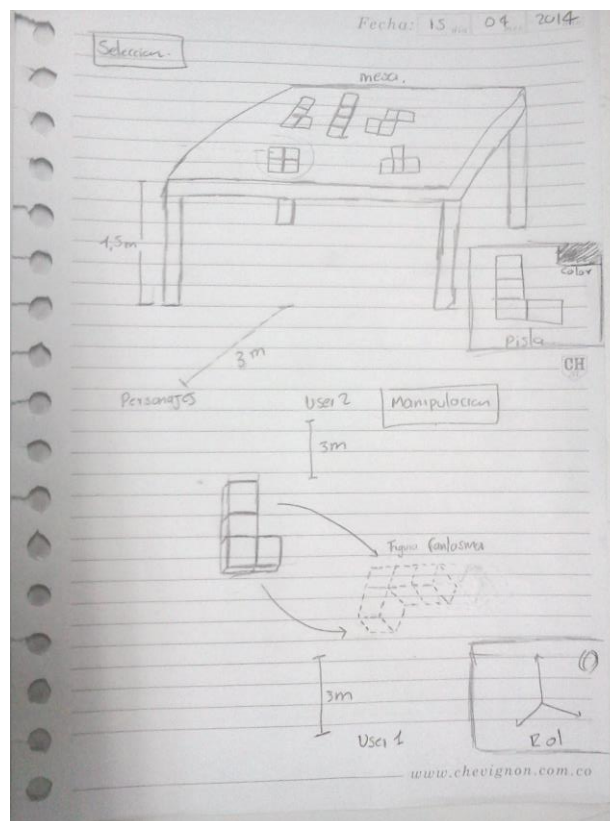 Fecha: 15 04 2014
Seleccion.
mesa.
1,5m
Color
Pista
3m
CH
Personajes
User 2
Manipulacion
3m
Figura fantasma
3m
User 1
Rol
www.chevignon.com.co